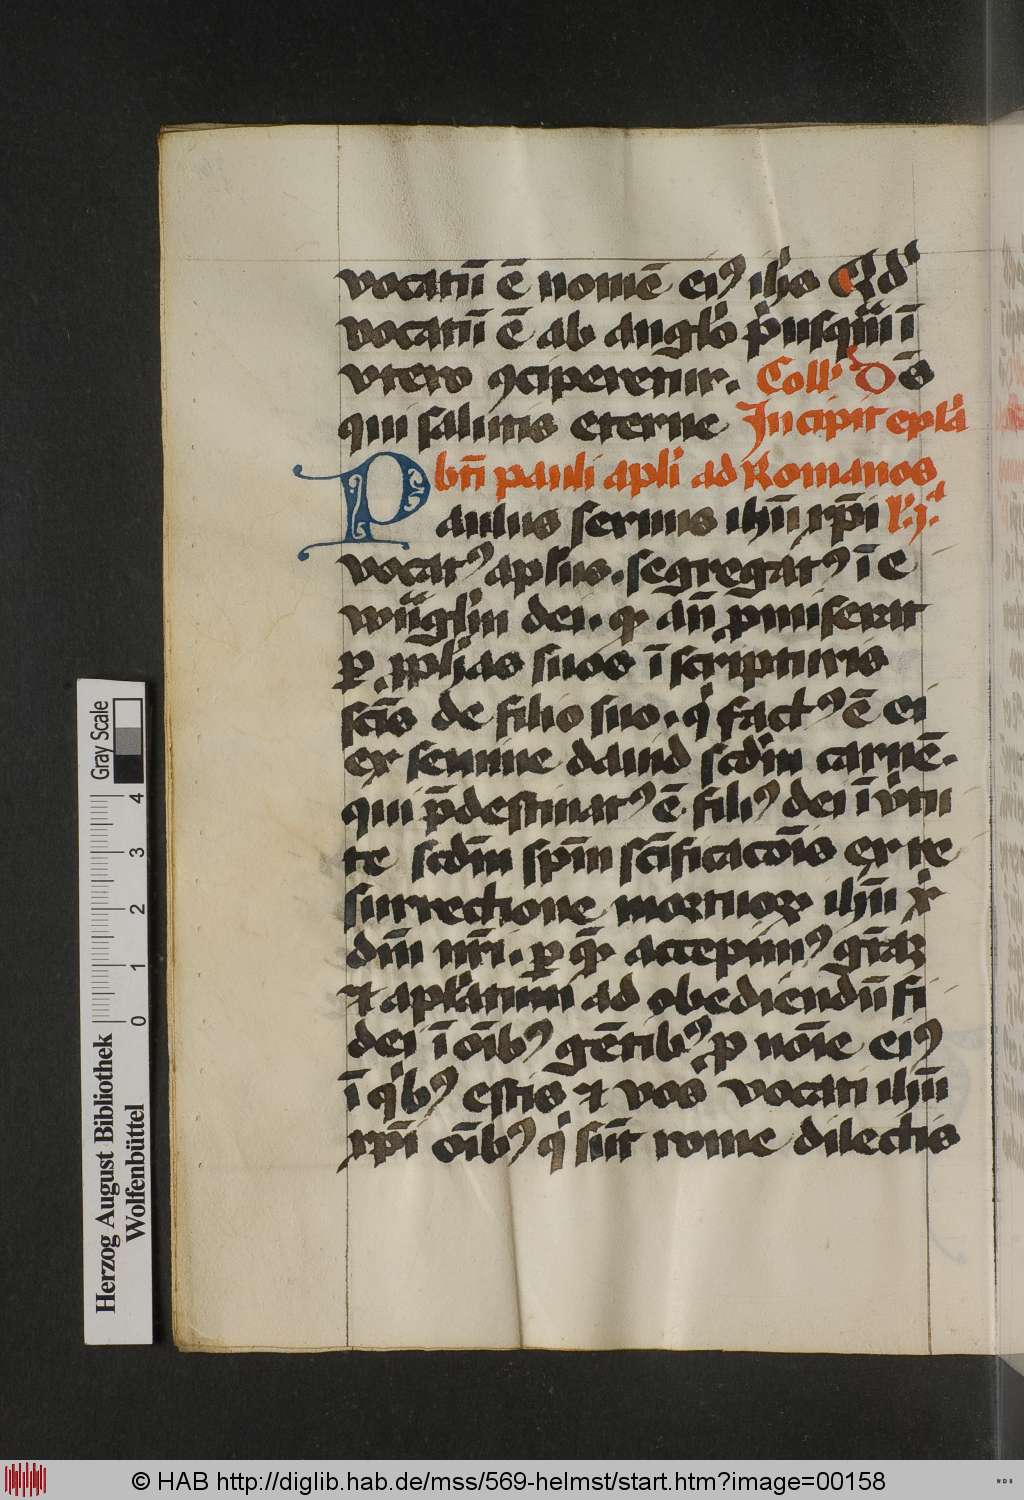 vocatū ē nomē eiꝰ ihs Qd'
vocatū ē ab anglo pͥusqͣm ī
vtero ꝯciperetur. Coll' Ds̄
qui salutis eterne Incipit epla
bt̄i pauli apli ad Romanos
Paulus seruus ihū xp̄i l' j'
vocatꝰ aplus. segregatꝰ ī e
wāgliū dei. qͦ an̄ ꝓmiserat
ꝑ ꝓphas suos ī scripturis
sc̄is de filio suo. qͥ factꝰ ē ei
ex semine dauid scdm carnē.
qui p̄destinatꝰ ē filiꝰ dei ī vͥtu
te scdm sp̄m sc̄ificacōis ex re
surrectione mortuoꝝ ihū xͥ
dn̄i nr̄i. ꝑ qͤ accepimꝰ gr̄az
et aplatum ad obediendū fi
dei ī oībꝰ gētibꝰ ꝓ noīe eiꝰ
ī qͥbꝰ estis et vos vocati ihū
xp̄i oībꝰ qͥ sūt rome dilectis
Gray Scale
4
3
2
1
0
Herzog August Bibliothek
Wolfenbüttel
© HAB http://diglib.hab.de/mss/569-helmst/start.htm?image=00158